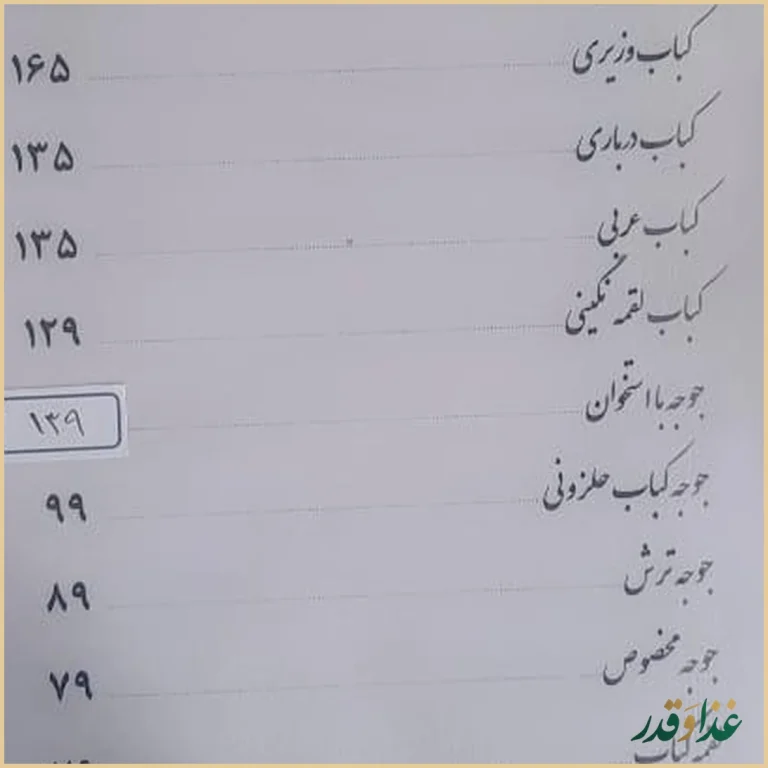 کباب وزیری ۱۶۵
کباب درباری ۱۳۵
کباب عربی ۱۳۵
کباب لقمه نگینی ۱۲۹
جوجه با استخوان ۱۳۹
جوجه کباب حلزونی ۹۹
جوجه ترش ۸۹
جوجه مخصوص ۷۹
لقمه کباب
غذا و قدر